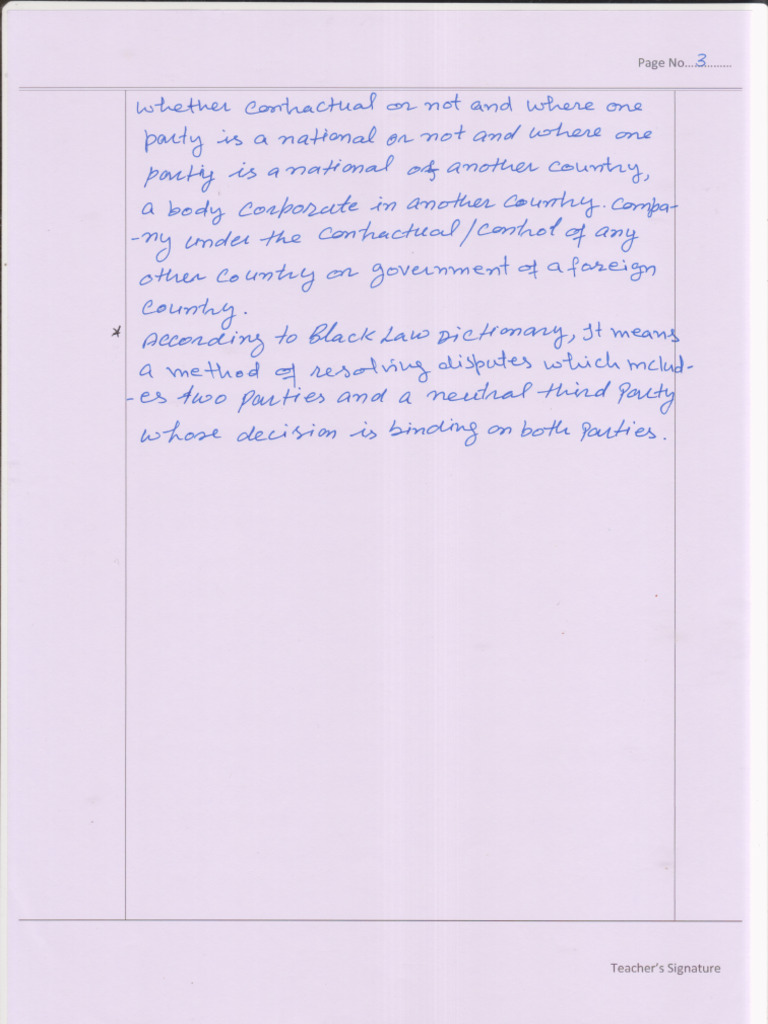 Page No....3........
whether contractual or not and where one
party is a national or not and where one
party is a national of another country,
a body corporate in another country. Compa-
-ny under the contractual/control of any
other country or government of a foreign
country.
* According to Black Law Dictionary, It means
a method of resolving disputes which includ-
-es two parties and a neutral third party
whose decision is binding on both parties.
Teacher's Signature